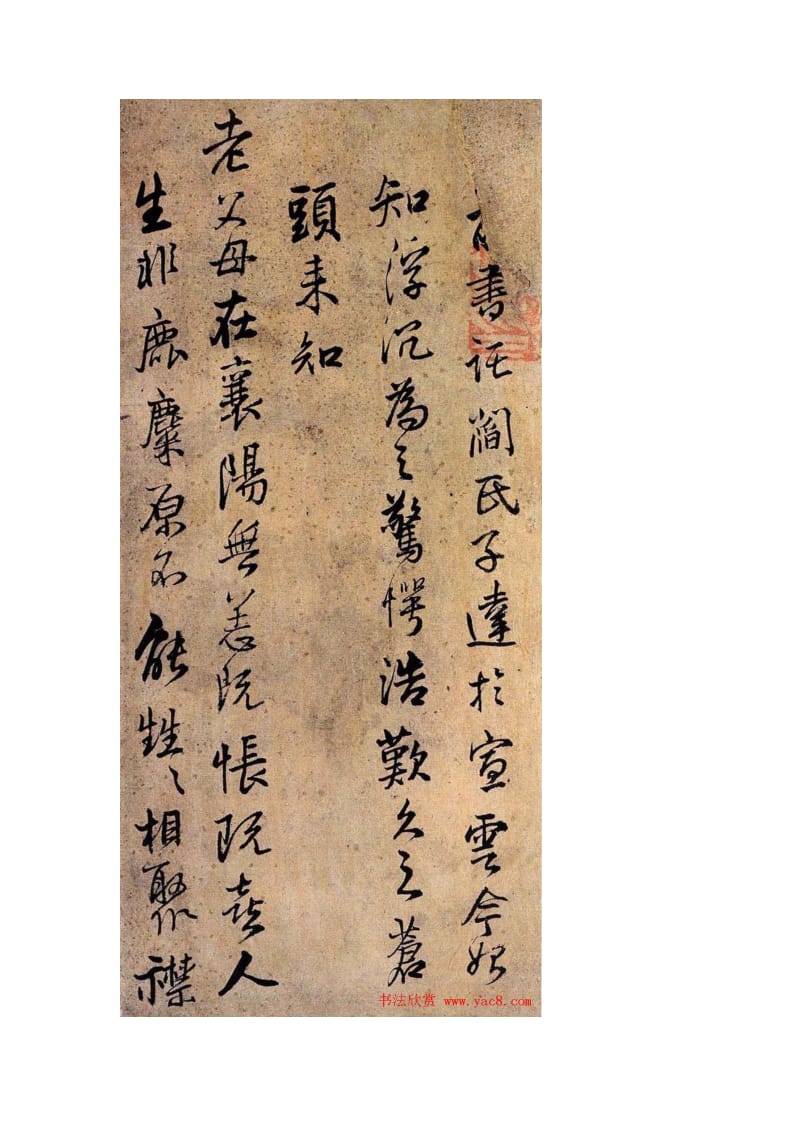 書託閻氏子達於宣雲今始
知浮沉為之驚愕浩歎久之蒼
頭来知
老父母在襄陽無恙既悵既喜人
生非鹿麋原不能甡〻相聚
书法欣赏 www.yac8.com